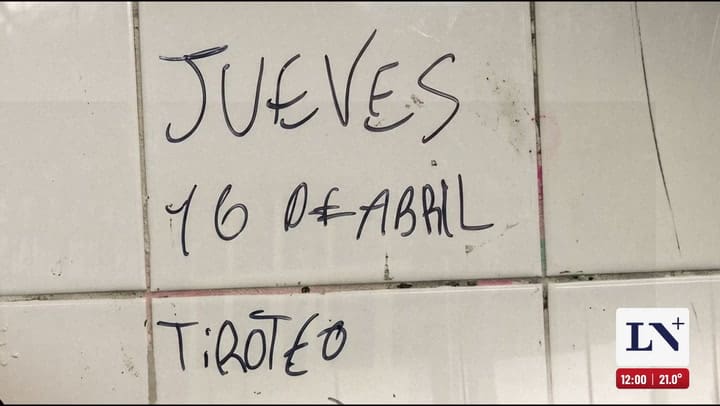 JUEVES
16 DE ABRIL
TiROTEO
LN+
12:00 | 21.0°